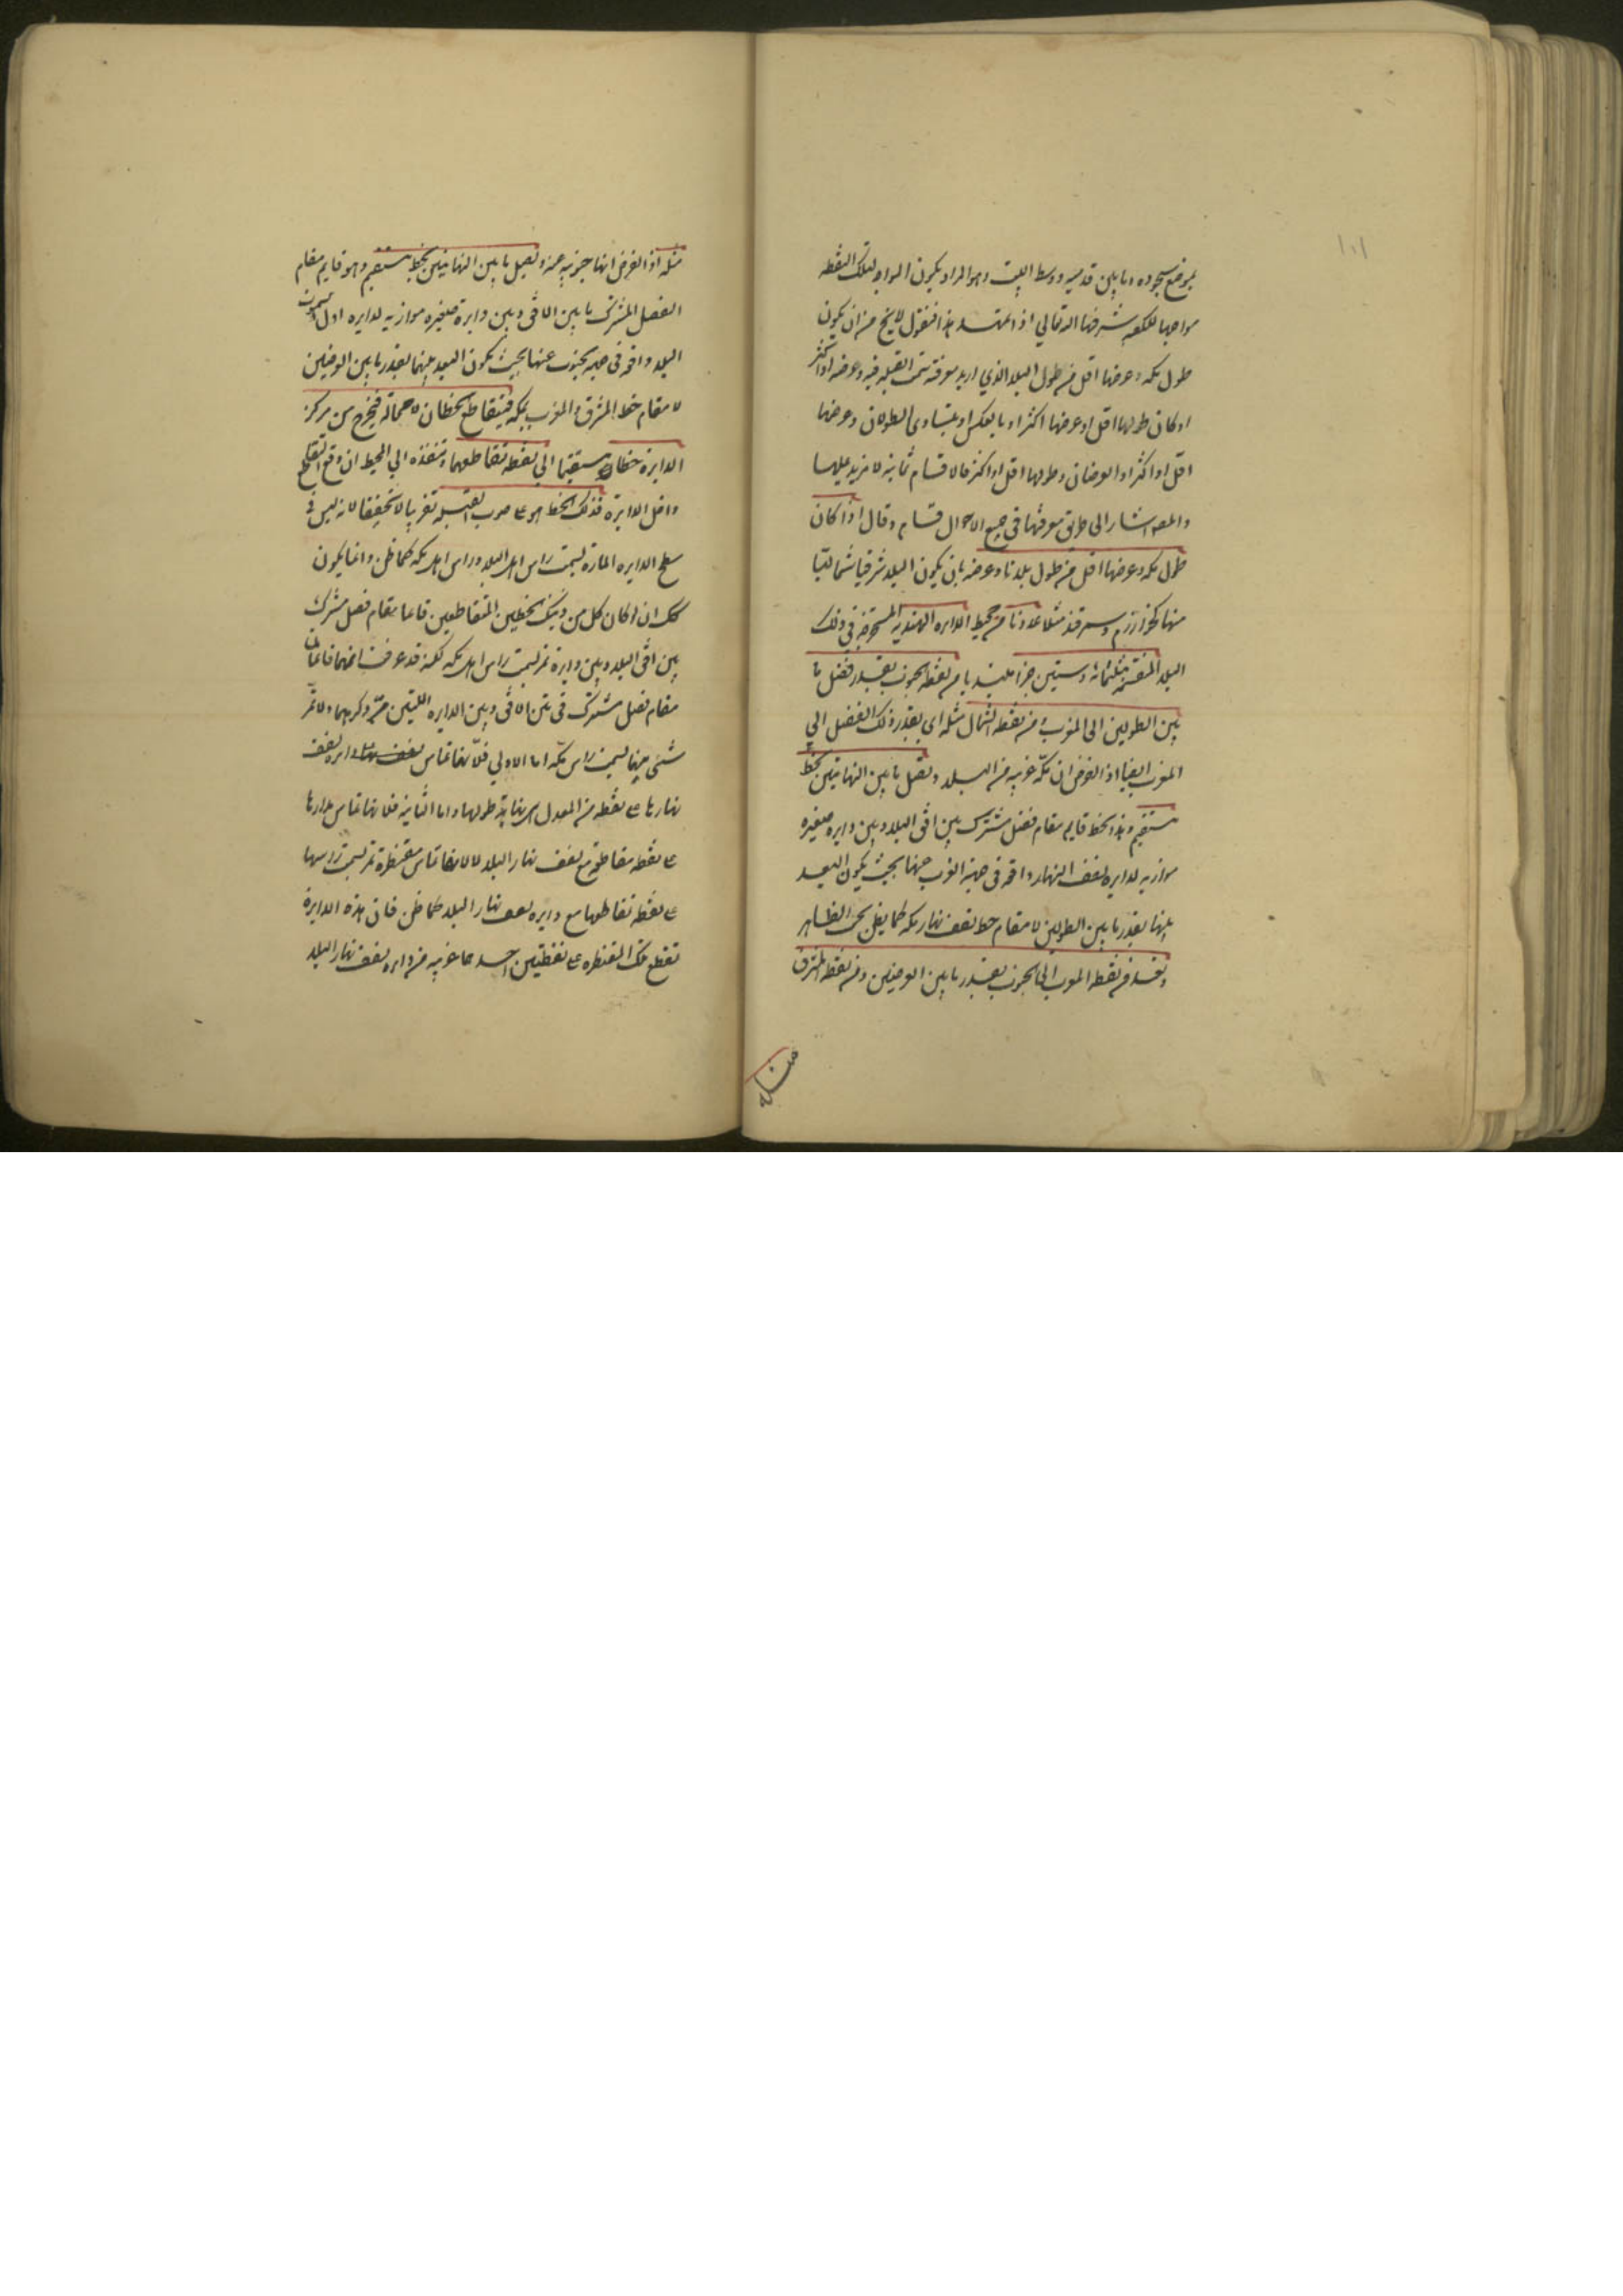 ١٠١
بموضع سجوده وما بين قدميه ووسط البيت وهو المراد يكون المواجه لتلك النقطة
مواجها للكعبه شرفها الله تعالى اذا تمهد هذا فنقول لا يخ من ان يكون
طول مكه وعرضها اقل من طول البلد الذي اريد معرفة سمت القبله فيه وعرضه او اكثر
او كان طولها اقل وعرضها اكثر او بالعكس او يتساوى الطولان وعرضها
اقل او اكثر او العرضان وطولها اقل او اكثر فالاقسام ثمانية لا مزيد عليها
والمص اشار الى طريق معرفتها في جميع الاحوال قسام وقال اذا كان
طول مكه وعرضها اقل من طول بلدنا وعرضه بان يكون البلد شرقيا شماليا
منها كخوارزم وسمرقند مثلا عددنا من محيط الدايره الهنديه المستخرجة في ذلك
البلد المنقسمة بثلثمائة وستين جزا مبتديا من نقطة الجنوب بقدر فضل ما
بين الطولين الى المغرب ومن نقطة الشمال مثله اي بقدر ذلك الفضل الي
المغرب ايضا اذ الفرض ان مكّة غربيه من البلد ونصل ما بين النهايتين بخط
مستقيم وهذا الخط قايم مقام فصل مشترك بين افق البلد وبين دايره صغيره
موازيه لدايرة نصف النهار واقعة في جهة الغرب عنها بحيث يكون البعد
بينهما بقدر ما بين الطولين لا مقام خط نصف نهار مكه كما يظن بحسب الظاهر
ونعد من نقطة المغرب الى الجنوب بقدر ما بين العرضين ومن نقطة المشرق
مثله
مثله اذ الفرض انها جنوبيه عنه ونصل ما بين النهايتين بخط مستقيم وهو قايم مقام
الفصل المشترك ما بين الافق وبين دايرة صغيره موازيه لدايره اول السموت
البلد واقعة في جهة الجنوب عنها بحيث يكون البعد بينهما بقدر ما بين العرضين
لا مقام خط المشرق والمغرب بمكه فيتقاطع الخطان لا محالة فيخرج من مركز
الدايرة خطا مستقيما الى نقطة تقاطعهما وننفذه الي المحيط ان وقع التقاطع
داخل الدايرة فذلك الخط هو على صوب القبله تقريبا لا تحقيقا لانه ليس في
سطح الدايره المارة بسمت راس اهل البلد وراس اهل مكه كما ظن وانما يكون
كك ان لو كان كل من ذينك الخطين المتقاطعين قائما مقام فصل مشترك
بين افق البلد وبين دايرة تمر بسمت راس اهل مكه لكنه قد عرفت انهما قائمان
مقام فصل مشترك في بين الافق وبين الدايره اللتين مرّ ذكرهما ولا تمرّ
شئ منهما بسمت راس مكّه اما الاولي فلانها تماس دايره نصف
نهارها على نقطة من المعدل هي نهاية طولها واما الثانية فلانها تماس مدارها
على نقطة مقاطعة مع نصف نهار البلد لا لانها تماس مقنطرة تمر بسمت رؤسها
على نقطة تقاطعها مع دايره نصف نهار البلد كما ظن فان هذه الدايرة
تقطع تلك المقنطره على نقطتين احدهما غربيه من دايره نصف نهار البلد